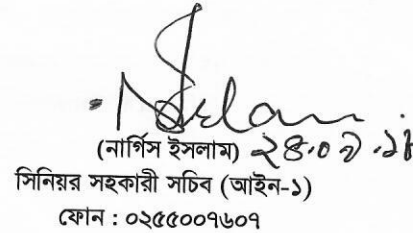 (নার্গিস ইসলাম) ২৪.০৭.১৮
সিনিয়র সহকারী সচিব (আইন-১)
ফোন : ০২৫৫০০৭৬০৭